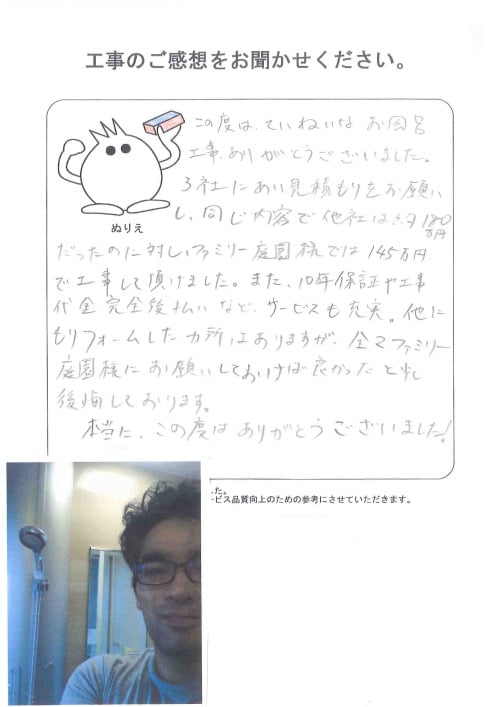 工事のご感想をお聞かせください。
ぬりえ
この度は、ていねいなお風呂
工事、ありがとうございました。
3社にあい見積もりをお願い
し、同じ内容で他社は約180万円
だったのに対し、ファミリー庭園様では145万円
で工事して頂けました。また、10年保証や工事
代金完全後払いなど、サービスも充実。他に
もリフォームしたカ所はありますが、全てファミリー
庭園様にお願いしておけば良かったと少し
後悔しております。
本当に、この度はありがとうございました!
た。
ービス品質向上のための参考にさせていただきます。